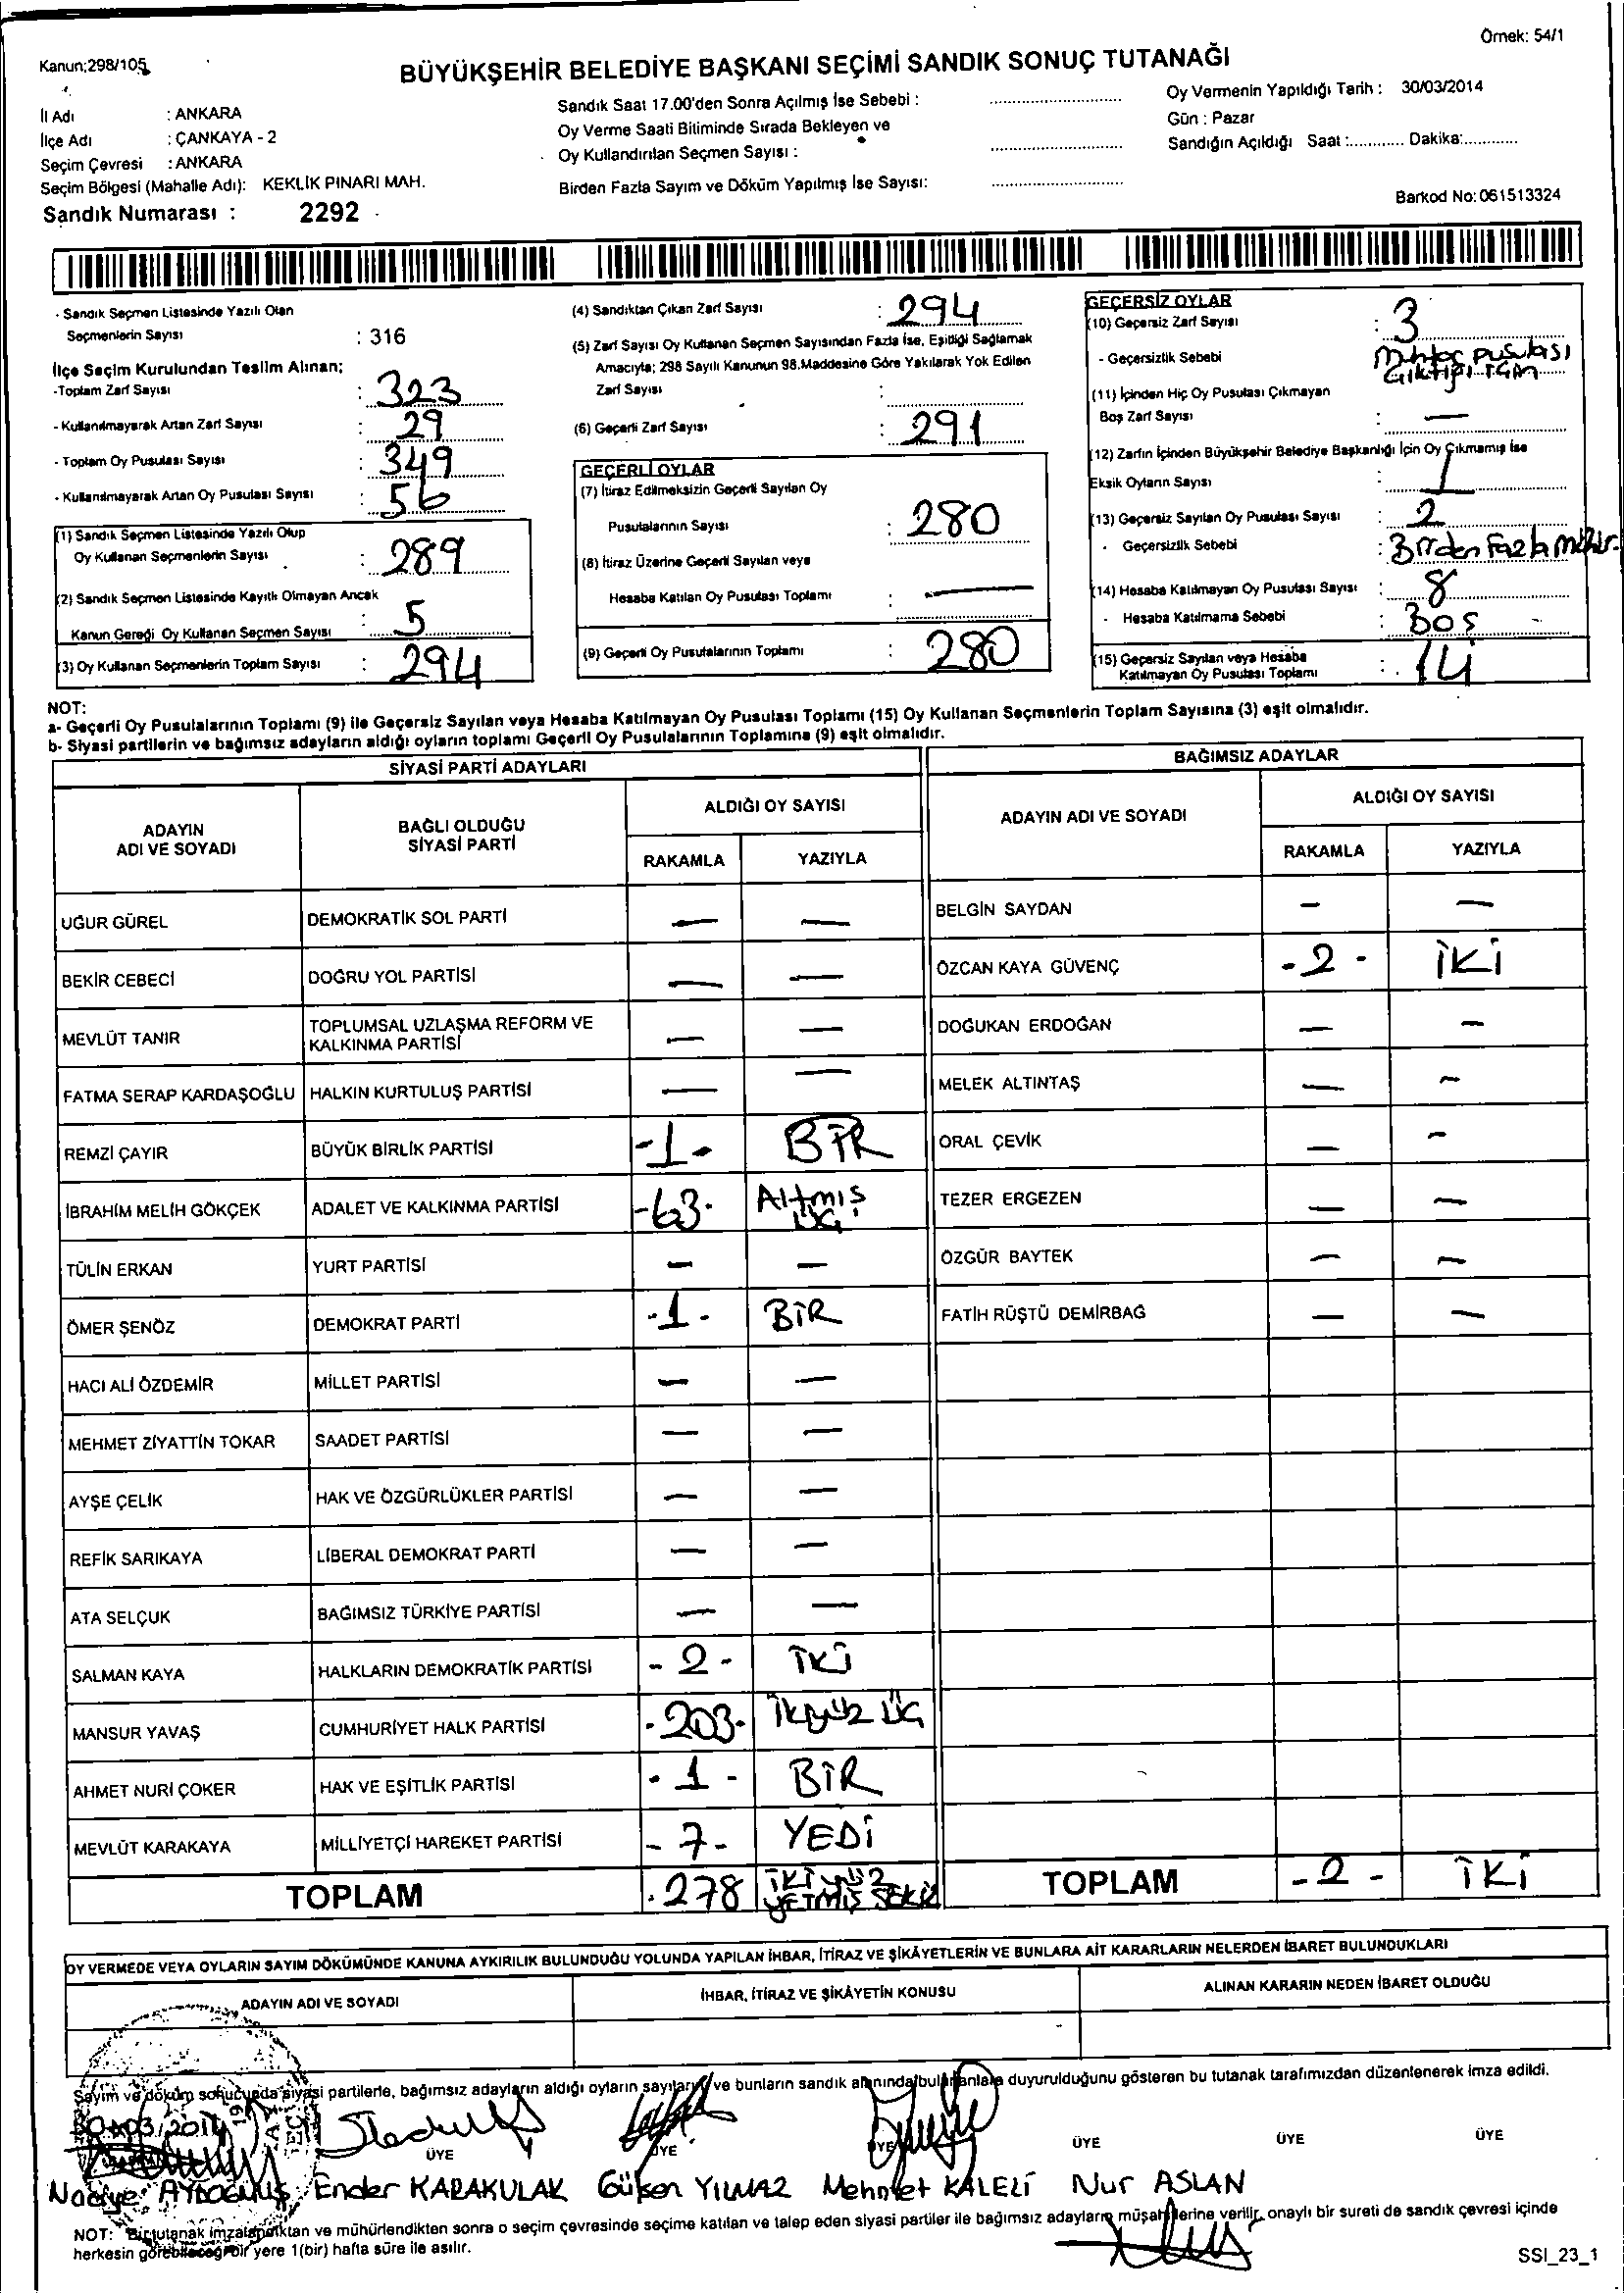 Örnek: 54/1
Kanun;298/105
BÜYÜKŞEHİR BELEDİYE BAŞKANI SEÇİMİ SANDIK SONUÇ TUTANAĞI
İl Adı : ANKARA
İlçe Adı : ÇANKAYA - 2
Seçim Çevresi : ANKARA
Seçim Bölgesi (Mahalle Adı): KEKLİK PINARI MAH.
Sandık Numarası : 2292
Sandık Saat 17.00'den Sonra Açılmış İse Sebebi :
Oy Verme Saati Bitiminde Sırada Bekleyen ve
Oy Kullandırılan Seçmen Sayısı :
Birden Fazla Sayım ve Döküm Yapılmış İse Sayısı:
Oy Vermenin Yapıldığı Tarih : 30/03/2014
Gün : Pazar
Sandığın Açıldığı Saat :............ Dakika:............
Barkod No: 061513324
- Sandık Seçmen Listesinde Yazılı Olan
Seçmenlerin Sayısı : 316
İlçe Seçim Kurulundan Teslim Alınan;
-Toplam Zarf Sayısı : 323
- Kullanılmayarak Artan Zarf Sayısı : 29
- Toplam Oy Pusulası Sayısı : 349
- Kullanılmayarak Artan Oy Pusulası Sayısı : 56
(1) Sandık Seçmen Listesinde Yazılı Olup
Oy Kullanan Seçmenlerin Sayısı : 289
(2) Sandık Seçmen Listesinde Kayıtlı Olmayan Ancak
Kanun Gereği Oy Kullanan Seçmen Sayısı : 5
(3) Oy Kullanan Seçmenlerin Toplam Sayısı : 294
(4) Sandıktan Çıkan Zarf Sayısı : 294
(5) Zarf Sayısı Oy Kullanan Seçmen Sayısından Fazla İse, Eşitliği Sağlamak
Amacıyla; 298 Sayılı Kanunun 98.Maddesine Göre Yakılarak Yok Edilen
Zarf Sayısı :
(6) Geçerli Zarf Sayısı : 291
GEÇERLİ OYLAR
(7) İtiraz Edilmeksizin Geçerli Sayılan Oy
Pusulalarının Sayısı : 280
(8) İtiraz Üzerine Geçerli Sayılan veya
Hesaba Katılan Oy Pusulası Toplamı : —
(9) Geçerli Oy Pusulalarının Toplamı : 280
GEÇERSİZ OYLAR
(10) Geçersiz Zarf Sayısı : 3
- Geçersizlik Sebebi Muhtaç pusulası
Çıktığı için
(11) İçinden Hiç Oy Pusulası Çıkmayan
Boş Zarf Sayısı : —
(12) Zarfın İçinden Büyükşehir Belediye Başkanlığı İçin Oy Çıkmamış İse
Eksik Oyların Sayısı : 1
(13) Geçersiz Sayılan Oy Pusulası Sayısı : 2
- Geçersizlik Sebebi : Birden Fazla mühür.
(14) Hesaba Katılmayan Oy Pusulası Sayısı : 8
- Hesaba Katılmama Sebebi : BOŞ
(15) Geçersiz Sayılan veya Hesaba
Katılmayan Oy Pusulası Toplamı : 14
NOT:
a- Geçerli Oy Pusulalarının Toplamı (9) ile Geçersiz Sayılan veya Hesaba Katılmayan Oy Pusulası Toplamı (15) Oy Kullanan Seçmenlerin Toplam Sayısına (3) eşit olmalıdır.
b- Siyasi partilerin ve bağımsız adayların aldığı oyların toplamı Geçerli Oy Pusulalarının Toplamına (9) eşit olmalıdır.
SİYASİ PARTİ ADAYLARI
ADAYIN ADI VE SOYADI BAĞLI OLDUĞU SİYASİ PARTİ ALDIĞI OY SAYISI RAKAMLA YAZIYLA
UĞUR GÜREL DEMOKRATİK SOL PARTİ — —
BEKİR CEBECİ DOĞRU YOL PARTİSİ — —
MEVLÜT TANIR TOPLUMSAL UZLAŞMA REFORM VE KALKINMA PARTİSİ — —
FATMA SERAP KARDAŞOĞLU HALKIN KURTULUŞ PARTİSİ — —
REMZİ ÇAYIR BÜYÜK BİRLİK PARTİSİ -1- BİR
İBRAHİM MELİH GÖKÇEK ADALET VE KALKINMA PARTİSİ -63- Altmış üç
TÜLİN ERKAN YURT PARTİSİ — —
ÖMER ŞENÖZ DEMOKRAT PARTİ -1- BİR
HACI ALİ ÖZDEMİR MİLLET PARTİSİ — —
MEHMET ZİYATTİN TOKAR SAADET PARTİSİ — —
AYŞE ÇELİK HAK VE ÖZGÜRLÜKLER PARTİSİ — —
REFİK SARIKAYA LİBERAL DEMOKRAT PARTİ — —
ATA SELÇUK BAĞIMSIZ TÜRKİYE PARTİSİ — —
SALMAN KAYA HALKLARIN DEMOKRATİK PARTİSİ -2- İKİ
MANSUR YAVAŞ CUMHURİYET HALK PARTİSİ -203- İkiyüz üç
AHMET NURİ ÇOKER HAK VE EŞİTLİK PARTİSİ -1- BİR
MEVLÜT KARAKAYA MİLLİYETÇİ HAREKET PARTİSİ -7- YEDİ
TOPLAM .278 İKİ YÜZ YETMİŞ SEKİZ
BAĞIMSIZ ADAYLAR
ADAYIN ADI VE SOYADI ALDIĞI OY SAYISI RAKAMLA YAZIYLA
BELGİN SAYDAN — —
ÖZCAN KAYA GÜVENÇ -2- İKİ
DOĞUKAN ERDOĞAN — —
MELEK ALTINTAŞ — —
ORAL ÇEVİK — —
TEZER ERGEZEN — —
ÖZGÜR BAYTEK — —
FATİH RÜŞTÜ DEMİRBAĞ — —
TOPLAM -2- İKİ
OY VERMEDE VEYA OYLARIN SAYIM DÖKÜMÜNDE KANUNA AYKIRILIK BULUNDUĞU YOLUNDA YAPILAN İHBAR, İTİRAZ VE ŞİKÂYETLERİN VE BUNLARA AİT KARARLARIN NELERDEN İBARET BULUNDUKLARI
ADAYIN ADI VE SOYADI İHBAR, İTİRAZ VE ŞİKÂYETİN KONUSU ALINAN KARARIN NEDEN İBARET OLDUĞU
Sayım ve döküm sonucunda siyasi partilerle, bağımsız adayların aldığı oyların sayılarını ve bunların sandık alanında bulunanlara duyurulduğunu gösteren bu tutanak tarafımızdan düzenlenerek imza edildi.
30/03/2014
ÜYE ÜYE ÜYE ÜYE ÜYE ÜYE
Naciye AYDOĞMUŞ Ender KARAKULAK Gülşen YILMAZ Mehmet KALELİ Nur ASLAN
NOT: Bir tutanak imzalandıktan ve mühürlendikten sonra o seçim çevresinde seçime katılan ve talep eden siyasi partiler ile bağımsız adayların müşahitlerine verilir, onaylı bir sureti de sandık çevresi içinde
herkesin görebileceği bir yere 1(bir) hafta süre ile asılır.
SSI_23_1